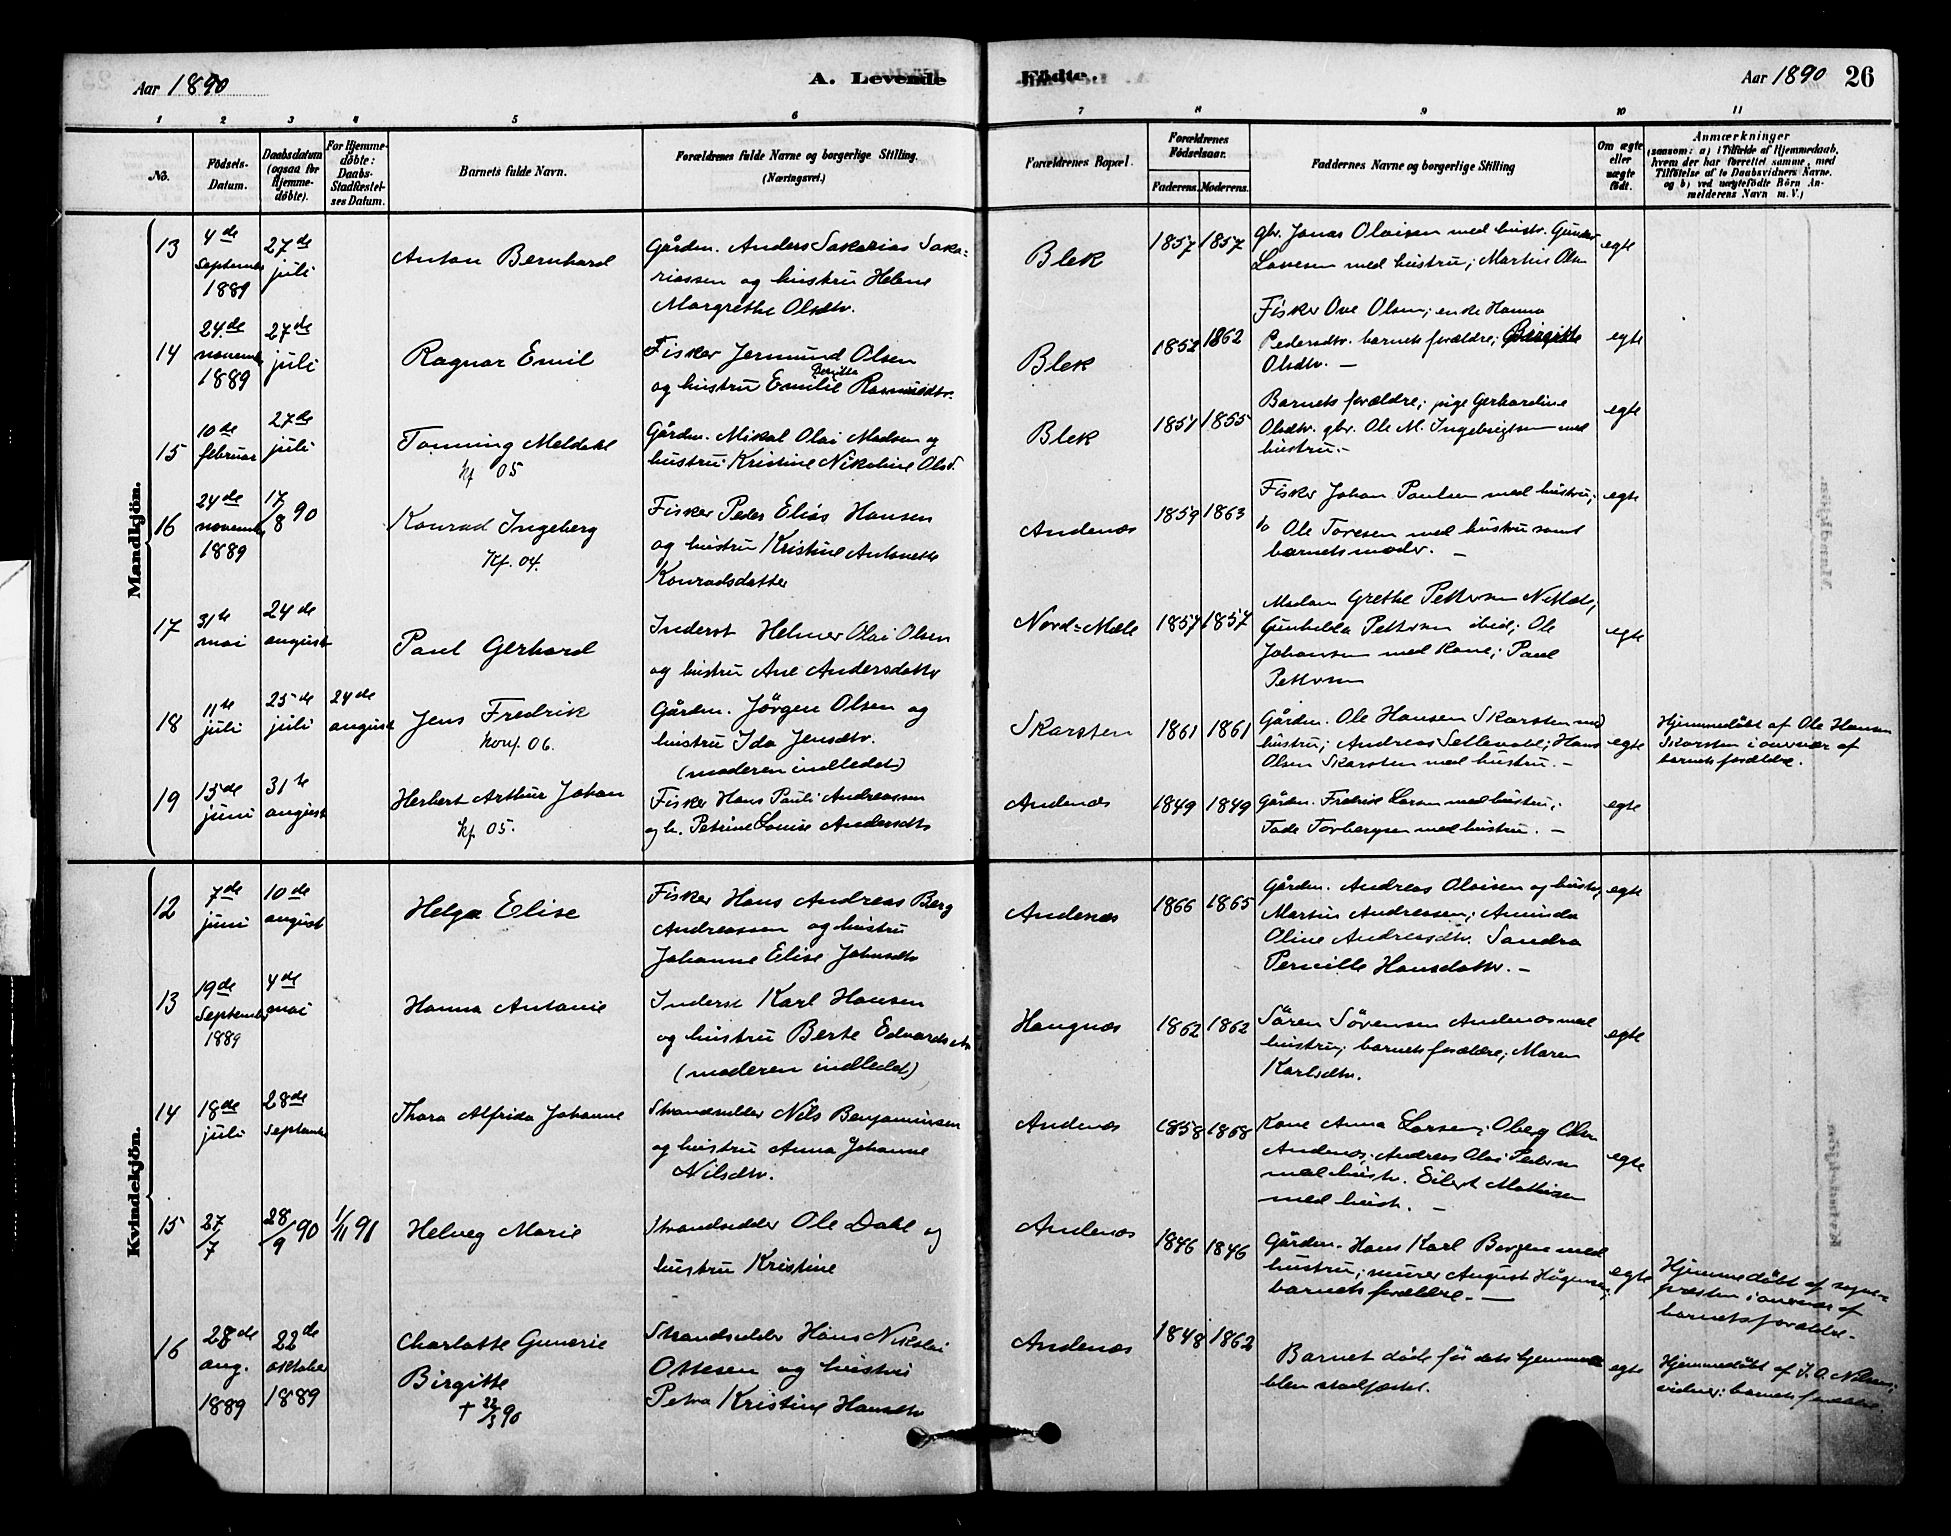 Aar 1890
A. Levende
Födte.
Aar 1890 26
1 2 3 4 5 6 7 8 9 10 11
No.
Födsels-
Datum.
Daabsdatum
(ogsaa for
Hjemme-
döbte).
For Hjemme-
döbte:
Daabs-
Stadfæstel-
ses Datum.
Barnets fulde Navn.
Forældrenes fulde Navne og borgerlige Stilling.
(Næringsvei.)
Forældrenes Bopæl.
Forældrenes
Födselsaar.
Faderens. Moderens.
Faddernes Navne og borgerlige Stilling
Om ægte
eller
uægte
födt.
Anmærkninger
(saasom: a) i Tilfælde af Hjemmedaab,
hvem der har forrettet samme, med
Tilföielse af to Daabsvidners Navne,
og b) ved uægtefödte Börn An-
melderens Navn m. V.)
Mandkjön.
13
4de
September
1889
27de
juli
Anton Bernhard
Gården. Anders Sakarias Saka-
riassen og hustru Helene
Margrethe Olsdtr.
Blek
1857 1857
gbr. Jonas Olaisen med hustr.
med hustru; Martin Olsen
egte
14
24de
novemb
1889
27de
juli
Ragnar Emil
Fisker Jermund Olsen
og hustru Emilie
Blek
1852 1862
Fisker Ove Olsen; enke Hanna
Pedersdtr. barnets forældre; Birgitte
Olsdtr. —
egte
15
10de
februar
27de
juli
Tonning Meldahl
Kf 05
Gården. Mikal Olai Madsen og
hustru Kristine Nikoline Olsd.
Blek
1857 1855
Barnets forældre; pige Gerhardine
Olsdtr. gbr. Ole M. Ingebrigtsen med
hustru.-
egte
16
24de
novemb
1889
17/8 90
Konrad Ingeberg
Kf. 04.
Fisker Peder Elias Hansen
og hustru Kristine Antonette
Konradsdatter
Andenæs
1859 1863
Fisker Johan Paulsen med hustru;
do Ole Toresen med hustru samt
barnets moder. —
egte
17
31te
mai
24de
august
Paul Gerhard
Inderst Helmer Olai Olsen
og hustru Ane Andersdatter
Nord-Mæle
1857 1857
Madam Grethe Pettersen
Gunhilda Pettersen ibid; Ole
Johansen med kone; Paul
Pettersen
egte
18
11te
juli
25de
juli
24de
august
Jens Fredrik
Konf. 06.
Gården. Jörgen Olsen og
hustru Ida Jensdtr.
(moderen indledet)
Skarsten
1861 1861
Gården. Ole Hansen Skarsten med
hustru; Andreas Sellevold; Hans
Olsen Skarsten med hustru. -
egte
Hjemmedöbt af Ole Hansen
Skarsten i overvær af
barnets forældre.
19
15de
juni
31te
august
Herbert Arthur Johan
Kf. 05.
Fisker Hans Pauli Andreassen
og h. Petrine Louise Andersdtr
Andenæs
1849 1849
Gården. Fredrik Larsen med hustru;
Tade Torbergsen med hustru. —
egte
Kvindekjön.
12
7de
juni
10de
august
Helga Elise
Fisker Hans Andreas Berg
Andreassen og hustru
Johanne Elise Johnsdtr
Andenæs
1866 1865
Gården. Andreas Olaisen og hustr;
Martin Andreassen; Aminda
Oline Andreasdtr. Sandra
Pernille Hansdatter. -
egte
13
19de
September
1889
4de
mai
Hanna Antonie
Inderst Karl Hansen
og hustru Berte Edvardsdtr
(moderen indledet)
Haugnæs
1862 1862
Sören Sörensen Andenæs med
hustru; barnets forældre; Maren
Karlsdtr.
egte
14
18de
juli
28de
September
Thora Alfrida Johanne
Strandsidder Nils Benjaminsen
og hustru Anna Johanne
Nilsdtr.
Andenæs
1858 1868
Kone Anna Larsen; Oberg Olsen
Andenæs; Andreas Olai Pedersen
med hustr. Eilert Mathisen
med hustr. —
egte
15
27/7
28/9 90
1/11 91
Helveg Marie
Strandsidder Ole Dahl og
hustru Kristine
Andenæs
1846 1846
Gården. Hans Karl Borgen med
hustru; murer August Högensen,
barnets forældre. —
egte
Hjemmedöbt af sogne-
præsten i overvær af
barnets forældre.
16
28de
aug.
1889
22de
oktober
1889
Charlotte Gunerie
Birgitte
† 22/3 90
Strandsidder Hans Nikolai
Ottesen og hustru
Petra Kristine Hansdtr
Andenæs
1848 1862
Barnet döde för dets hjemmed.
blev stadfæstet.
egte
Hjemmedöbt af J. A. Nilsen;
vidner: barnets forældre.